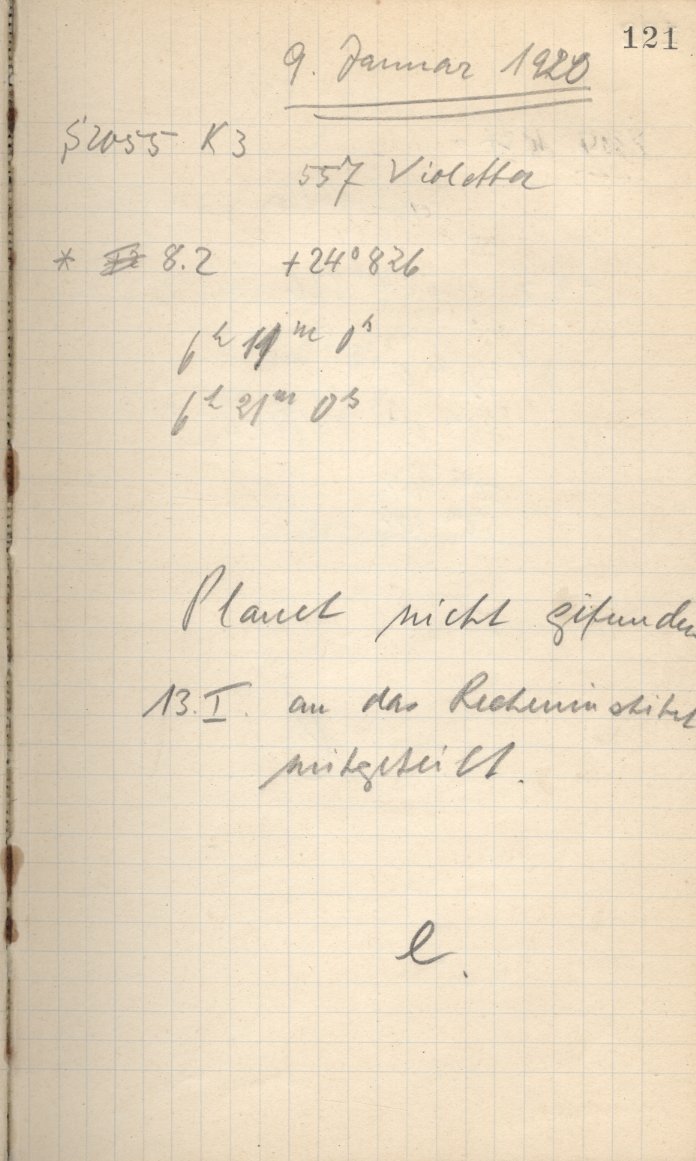 121
9. Januar 1920
S2055 K3
557 Violetta
* 8.2 +24° 826
6h 11m 0s
6h 21m 0s
Planet nicht gefunden
13. I. an das Recheninstitut
mitgeteilt.
e.